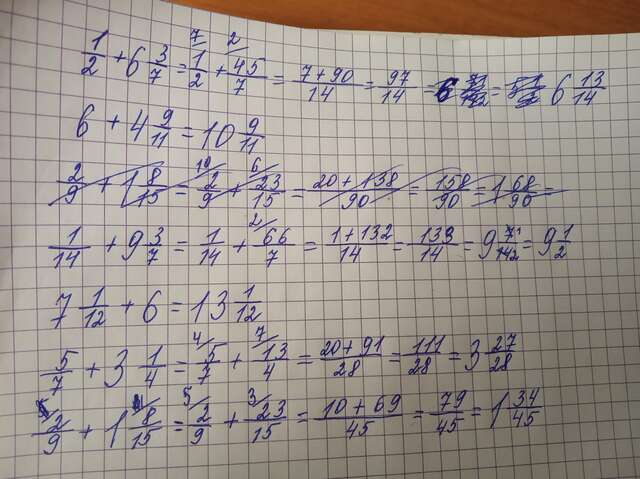 1/2 + 6 3/7 = 7/ 1/2 + 2/ 45/7 = 7+90/14 = 97/14 = = 6 13/14
6 + 4 9/11 = 10 9/11
2/9 + 1 8/15 = 10/ 2/9 + 6/ 23/15 = 20+138/90 = 158/90 = 1 68/90 =
1/14 + 9 3/7 = 1/14 + 2/ 66/7 = 1+132/14 = 133/14 = 9 7 1/14 2 = 9 1/2
7 1/12 + 6 = 13 1/12
5/7 + 3 1/4 = 4/ 5/7 + 7/ 13/4 = 20+91/28 = 111/28 = 3 27/28
2/9 + 1 8/15 = 5/ 2/9 + 3/ 23/15 = 10+69/45 = 79/45 = 1 34/45